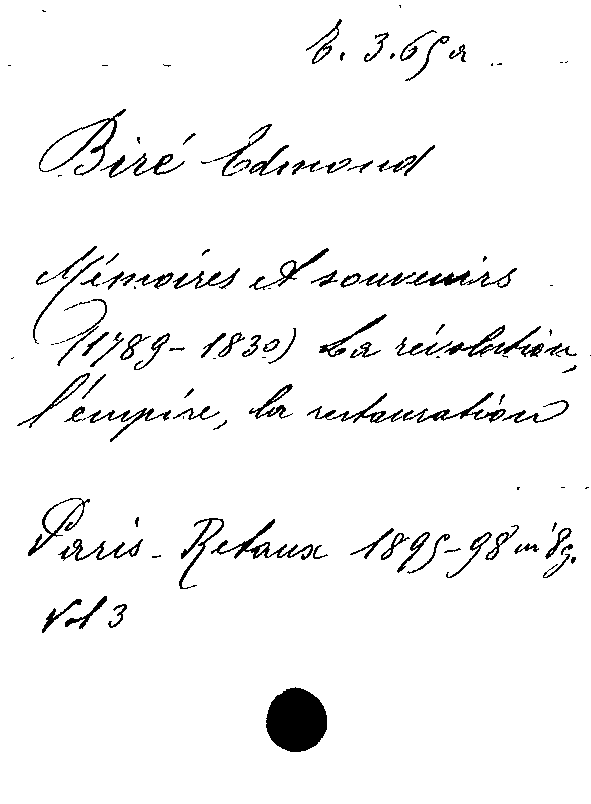 E. 3.65 a
Biré Edmond
Mémoires et souvenirs
(1789-1830) La révolution,
l'émpire, la restauration
Paris - Retaux 1895-98 in 8g.
Vol 3